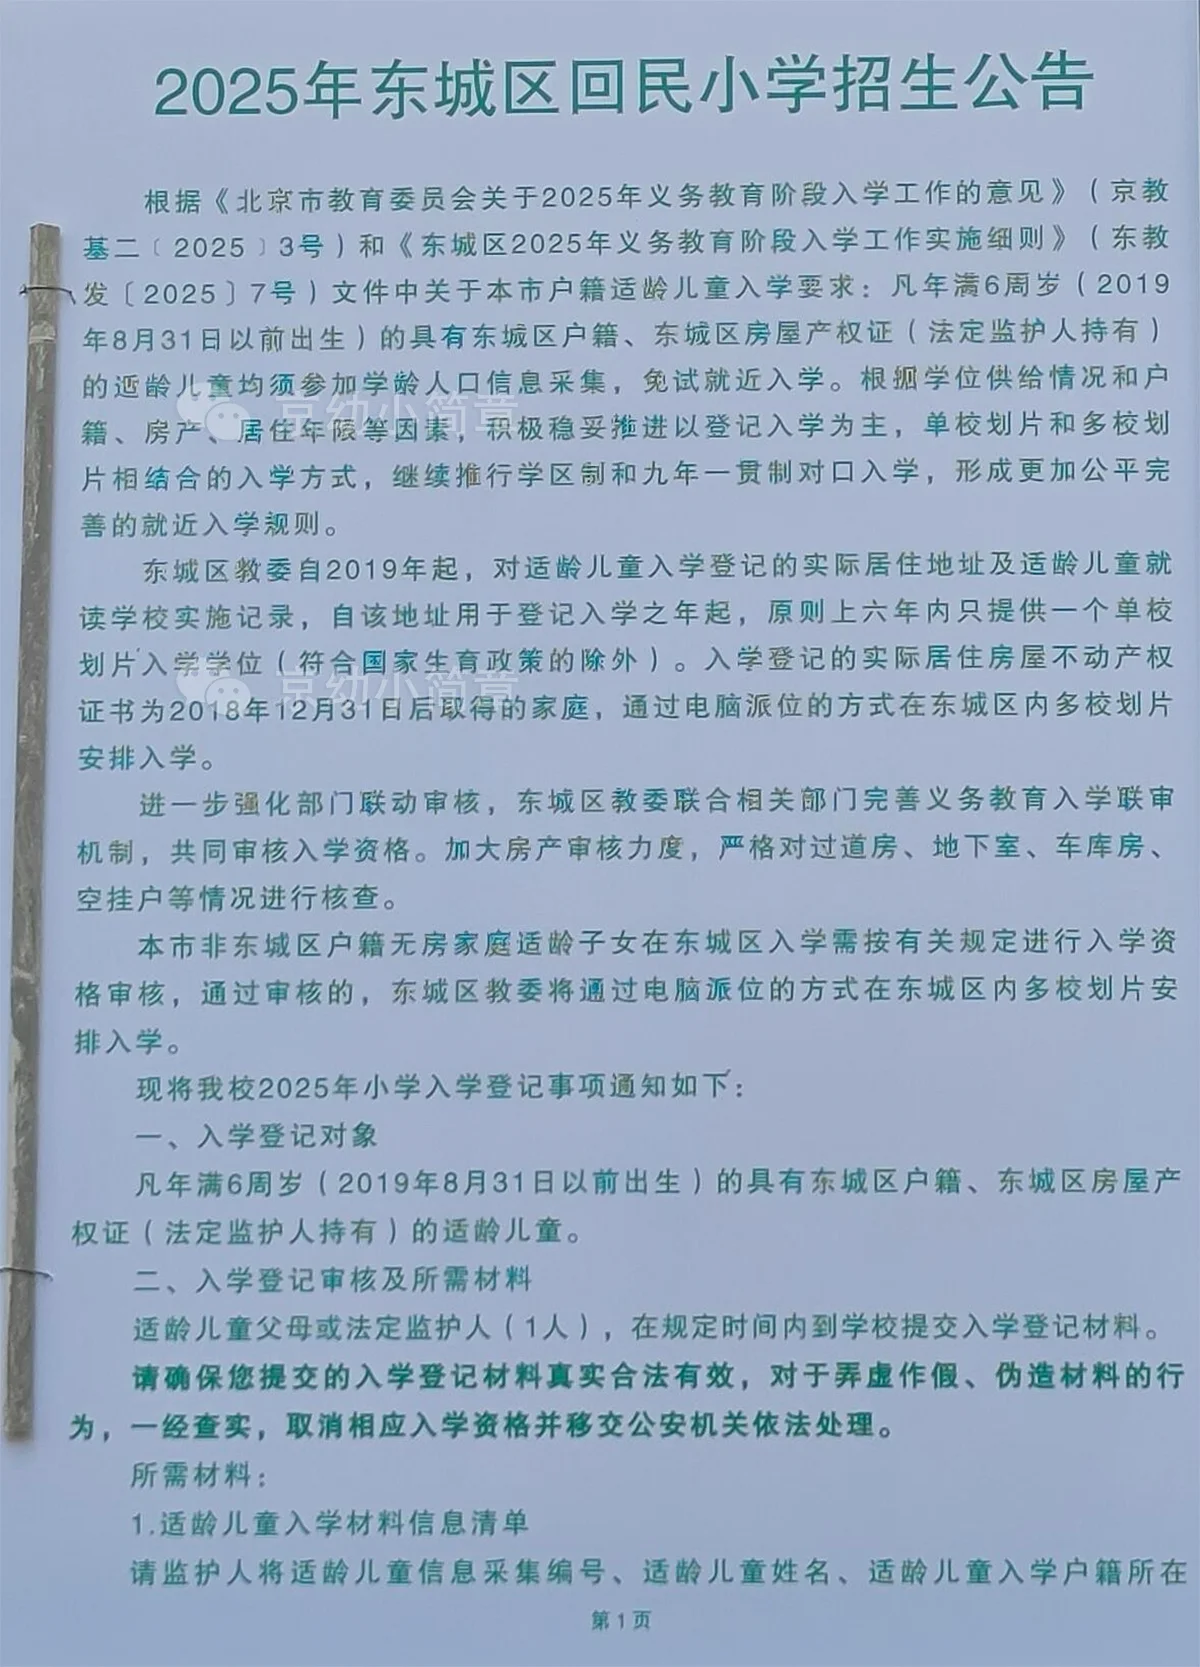 2025年东城区回民小学招生公告
根据《北京市教育委员会关于2025年义务教育阶段入学工作的意见》（京教
基二〔2025〕3号）和《东城区2025年义务教育阶段入学工作实施细则》（东教
发〔2025〕7号）文件中关于本市户籍适龄儿童入学要求：凡年满6周岁（2019
年8月31日以前出生）的具有东城区户籍、东城区房屋产权证（法定监护人持有）
的适龄儿童均须参加学龄人口信息采集，免试就近入学。根据学位供给情况和户
京幼小简章
籍、房产、居住年限等因素，积极稳妥推进以登记入学为主，单校划片和多校划
片相结合的入学方式，继续推行学区制和九年一贯制对口入学，形成更加公平完
善的就近入学规则。
东城区教委自2019年起，对适龄儿童入学登记的实际居住地址及适龄儿童就
读学校实施记录，自该地址用于登记入学之年起，原则上六年内只提供一个单校
划片入学学位（符合国家生育政策的除外）。入学登记的实际居住房屋不动产权
京幼小简章
证书为2018年12月31日后取得的家庭，通过电脑派位的方式在东城区内多校划片
安排入学。
进一步强化部门联动审核，东城区教委联合相关部门完善义务教育入学联审
机制，共同审核入学资格。加大房产审核力度，严格对过道房、地下室、车库房、
空挂户等情况进行核查。
本市非东城区户籍无房家庭适龄子女在东城区入学需按有关规定进行入学资
格审核，通过审核的，东城区教委将通过电脑派位的方式在东城区内多校划片安
排入学。
现将我校2025年小学入学登记事项通知如下：
一、入学登记对象
凡年满6周岁（2019年8月31日以前出生）的具有东城区户籍、东城区房屋产
权证（法定监护人持有）的适龄儿童。
二、入学登记审核及所需材料
适龄儿童父母或法定监护人（1人），在规定时间内到学校提交入学登记材料。
请确保您提交的入学登记材料真实合法有效，对于弄虚作假、伪造材料的行
为，一经查实，取消相应入学资格并移交公安机关依法处理。
所需材料：
1.适龄儿童入学材料信息清单
请监护人将适龄儿童信息采集编号、适龄儿童姓名、适龄儿童入学户籍所在
第1页